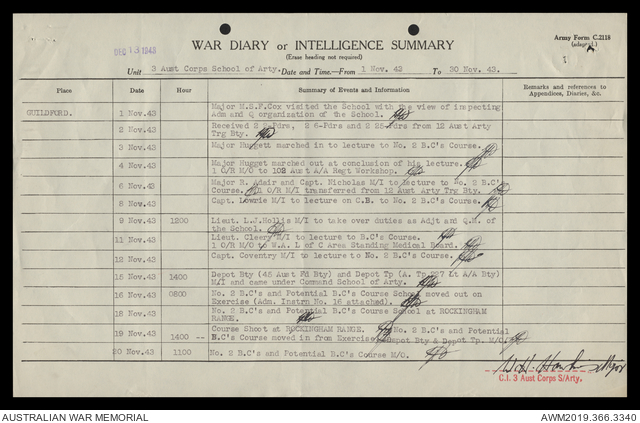 DEC 13 1943
Army Form C.2118
WAR DIARY or INTELLIGENCE SUMMARY
(Erase heading not required)
Unit 3 Aust Corps School of Arty. Date and Time—From 1 Nov. 43 To 30 Nov. 43.
Place Date Hour Summary of Events and Information Remarks and references to Appendices, Diaries, &c.
GUILDFORD. 1 Nov.43 Major M.S.F.Cox visited the School with the view of inspecting
Adm and Q organization of the School.
2 Nov.43 Received 2 2-Pdrs, 2 6-Pdrs and 2 25-Pdrs from 12 Aust Arty
Trg Bty.
3 Nov.43 Major Huggett marched in to lecture to No. 2 B.C's Course.
4 Nov.43 Major Hugget marched out at conclusion of his lecture.
1 O/R M/O to 102 Aust A/A Regt Workshop.
6 Nov.43 Major R. Adair and Capt. Nicholas M/I to lecture to No. 2 B.C'
Course. 1 O/R M/I transferred from 12 Aust Arty Trg Bty.
8 Nov.43 Capt. Lowrie M/I to lecture on C.B. to No. 2 B.C's Course.
9 Nov.43 1200 Lieut. L.J.Hollis M/I to take over duties as Adjt and Q.M. of
the School.
11 Nov.43 Lieut. Cleery M/I to lecture to B.C's Course.
1 O/R M/O to W.A. L of C Area Standing Medical Board.
12 Nov.43 Capt. Coventry M/I to lecture to No. 2 B.C's Course.
15 Nov.43 1400 Depot Bty (45 Aust Fd Bty) and Depot Tp (A. Tp 227 Lt A/A Bty)
M/I and came under Command School of Arty.
16 Nov.43 0800 No. 2 B.C's and Potential B.C's Course School moved out on
Exercise (Adm. Instrn No. 16 attached).
18 Nov.43 No. 2 B.C's and Potential B.C's Course School at ROCKINGHAM
RANGE.
19 Nov.43 Course Shoot at ROCKINGHAM RANGE. No. 2 B.C's and Potential
1400 -- B.C's Course moved in from Exercise. Depot Bty & Depot Tp. M/O.
20 Nov.43 1100 No. 2 B.C's and Potential B.C's Course M/O.
Major
C.I. 3 Aust Corps S/Arty.
AUSTRALIAN WAR MEMORIAL AWM2019.366.3340